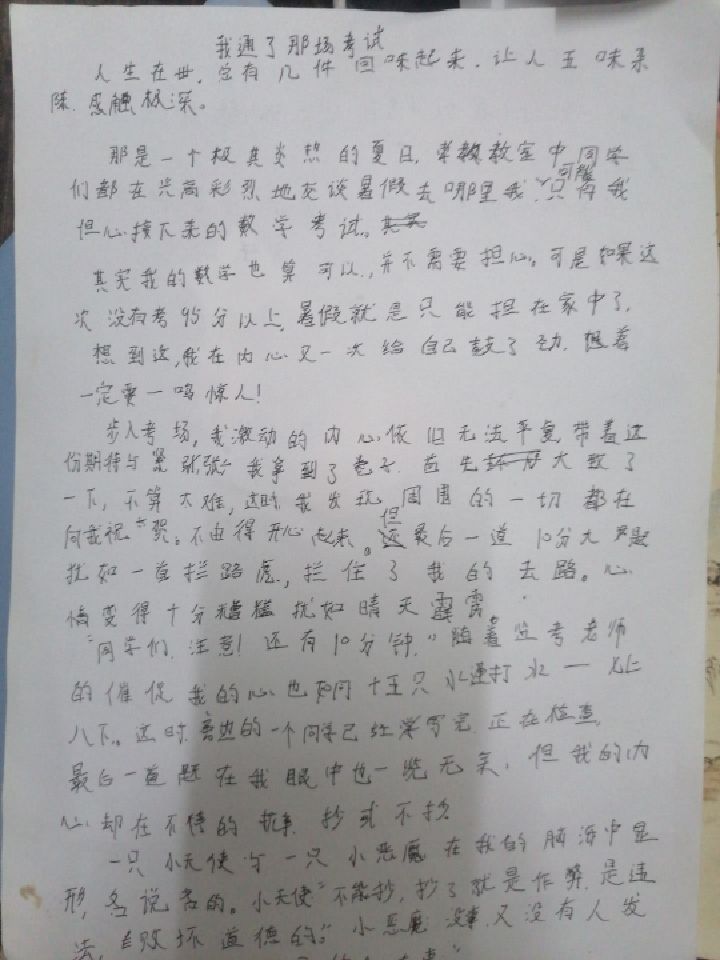 我通了那场考试
人生在世,总有几件回味起来,让人五味杂
陈,感触极深。
那是一个极其炎热的夏日,教室中同学
们都在兴高彩烈地交谈暑假去哪里我,只有我
可能
担心接下来的数学考试。
其实我的数学也算可以,并不需要担心。可是如果这
次没有考95分以上,暑假就是只能担在家中了,
想到这,我在内心又一次给自己鼓了劲,想着
一定要一鸣惊人!
步入考场,我激动的内心依旧无法平复,带着这
份期待与紧张,我拿到了卷子,首先大致了
一下,不算太难,这时我发现周围的一切都在
向我祝贺。不由得开心起来。但最后一道10分大题
犹如一直拦路虎,拦住了我的去路。心
情变得十分糟糕犹如晴天霹雳。
"同学们,注意!还有10分钟,"随着监考老师
的催促我的心也如同十五只水桶打水一七上
八下。这时,旁边的一个同学已经写完,正在检查,
最后一道题在我眼中也一览无余,但我的内
心却在不停的抗争,抄或不抄
一只小天使与一只小恶魔在我的脑海中显
形,各说各的。小天使"不能抄,抄了就是作弊,是违
法,败坏道德的。"小恶魔"没事,又没有人发